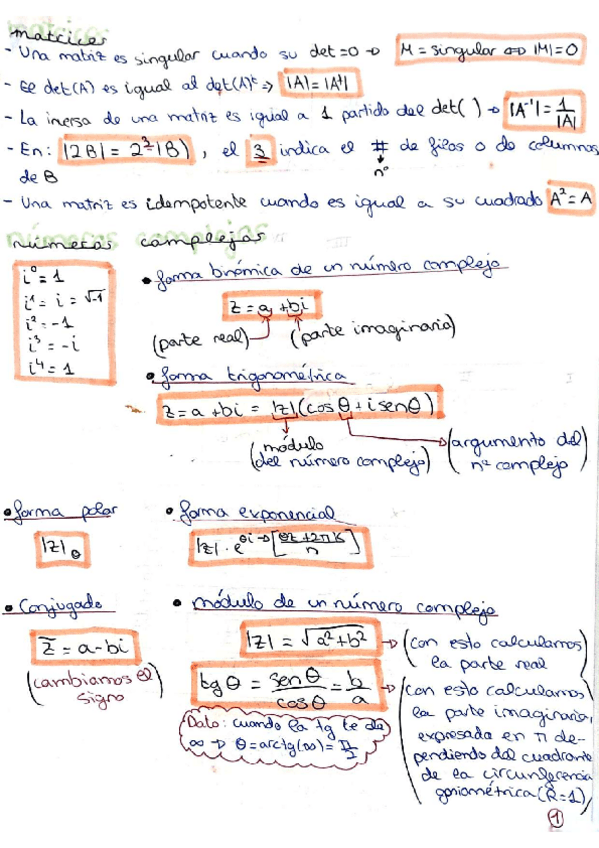 matrices
- Una matriz es singular cuando su det=0 → M = singular ⇔ |M|=0
- El det(A) es igual al det(A)ᵗ ⇒ |A|=|Aᵗ|
- La inersa de una matriz es igual a 1 partido del det( ) → |A⁻¹| = 1/|A|
- En: |2B| = 2³|B|, el 3 indica el # de filas o de columnas
nº
de B
- Una matriz es idempotente cuando es igual a su cuadrado A²=A
números complejos
i⁰ = 1
i¹ = i = √-1
i² = -1
i³ = -i
i⁴ = 1
• forma binómica de un número complejo
z = a + bi
(parte real) (parte imaginaria)
• forma trigonométrica
z = a + bi = |z|(cos θ + i sen θ)
(módulo del número complejo) (argumento del nº complejo)
• forma polar
|z|θ
• forma exponencial
|z| · e^θi → [θz + 2πk / n]
• Conjugado
z̄ = a - bi
(cambiamos el signo)
• módulo de un número complejo
|z| = √a² + b² → (con esto calculamos la parte real
tg θ = sen θ / cos θ = b / a → (con esto calculamos la parte imaginaria, expresada en π dependiendo del cuadrante de la circunferencia goniométrica (R=1)
Dato: cuando la tg te da
∞ → θ = arctg(∞) = π/2
1